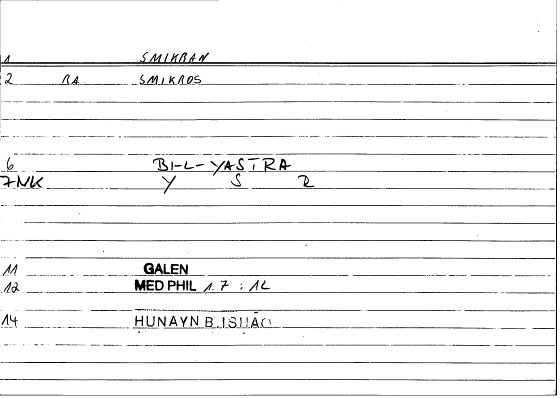 1 SMIKRAN
2 RA SMIKROS
6 BI-L-YASTRA
7NK Y S R
11 GALEN
12 MED PHIL 1.7 : 12
14 HUNAYN B. ISHAQ